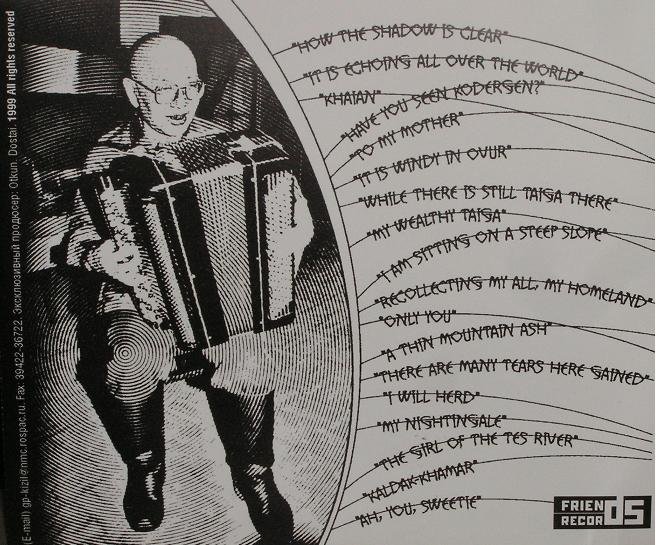 "HOW THE SHADOW IS CLEAR"
"IT IS ECHOING ALL OVER THE WORLD"
"KHAIAN"
"HAVE YOU SEEN KODERGEN?"
"TO MY MOTHER"
"IT IS WINDY IN OVUR"
"WHILE THERE IS STILL TAIGA THERE"
"MY WEALTHY TAIGA"
"I AM SITTING ON A STEEP SLOPE"
"RECOLLECTING MY ALL, MY HOMELAND"
"ONLY YOU"
"A THIN MOUNTAIN ASH"
"THERE ARE MANY TEARS HERE GAINED"
"I WILL HERD"
"MY NIGHTINGALE"
"THE GIRL OF THE TES RIVER"
"KALDAK-KHAMAR"
"AH, YOU, SWEETIE"
FRIENDS
RECORDS
(E-mail) gp-kizil@nmc.rospac.ru. Fax. 39422-36722. Эксклюзивный продюсер: Otkun. Dostai. 1999 All rights reserved